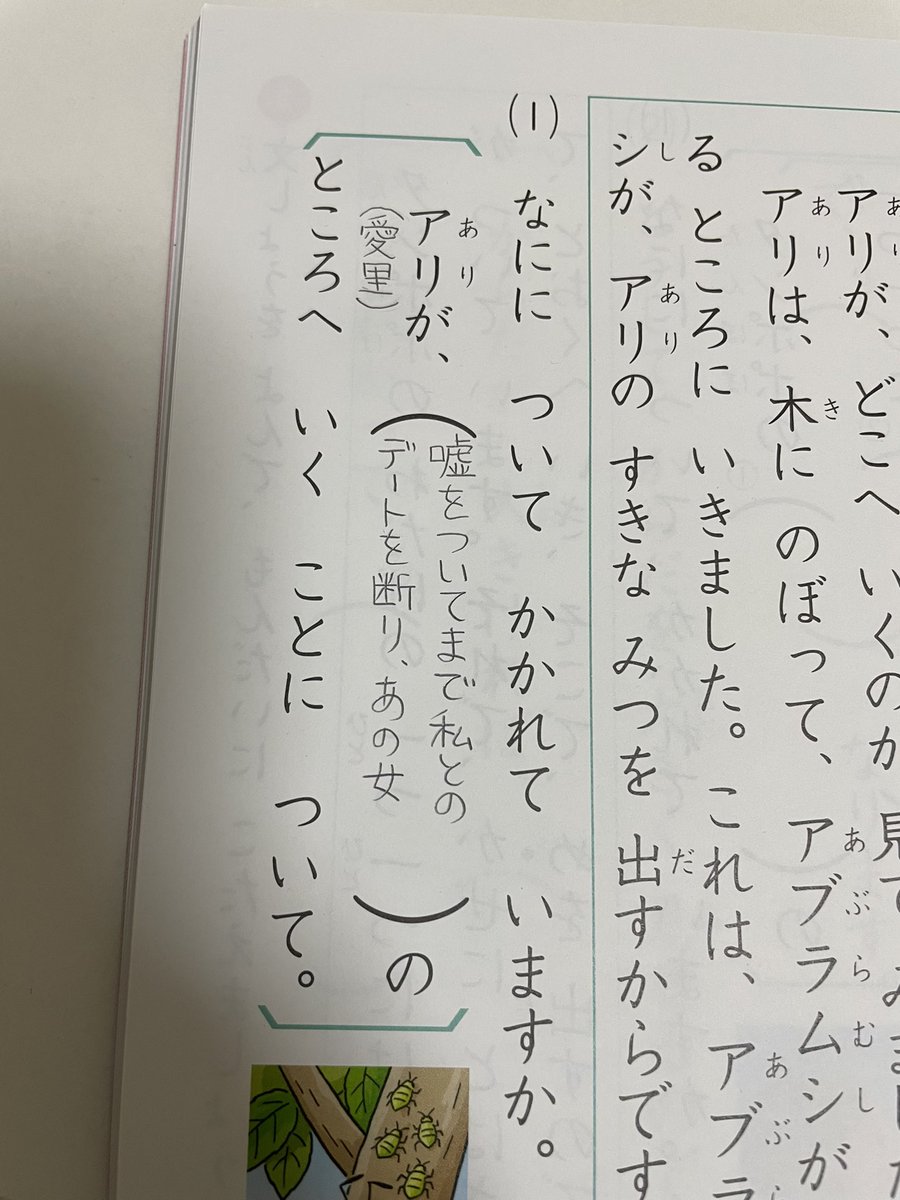 あり
アリが、どこへ いくのか 見て みました
あり き あぶらむし
アリは、木に のぼって、アブラムシが
あぶ
る ところに いきました。これは、アブラ
し あり だ
シが、アリの すきな みつを 出すからです
(1) なにに ついて かかれて いますか。
あり
アリが、(嘘をついてまで私との
(愛里)
デートを断り、あの女)の
ところへ いく ことに ついて。